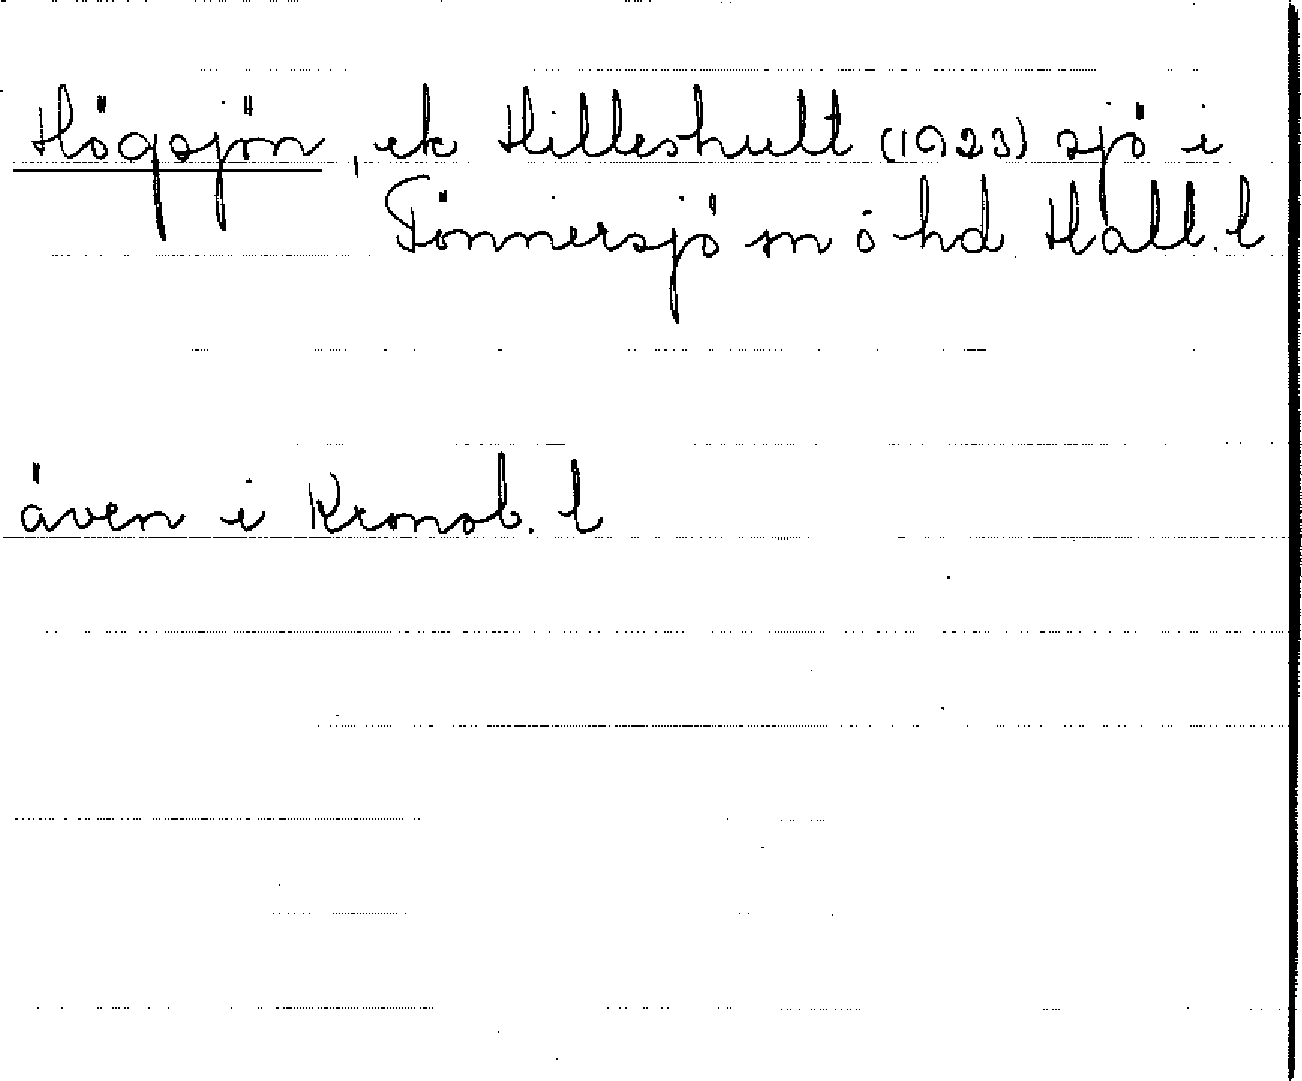 Högsjön, ek Hilleshult (1923) sjö i
Tönnersjö sn o hd Hall. l
även i Kronob. l